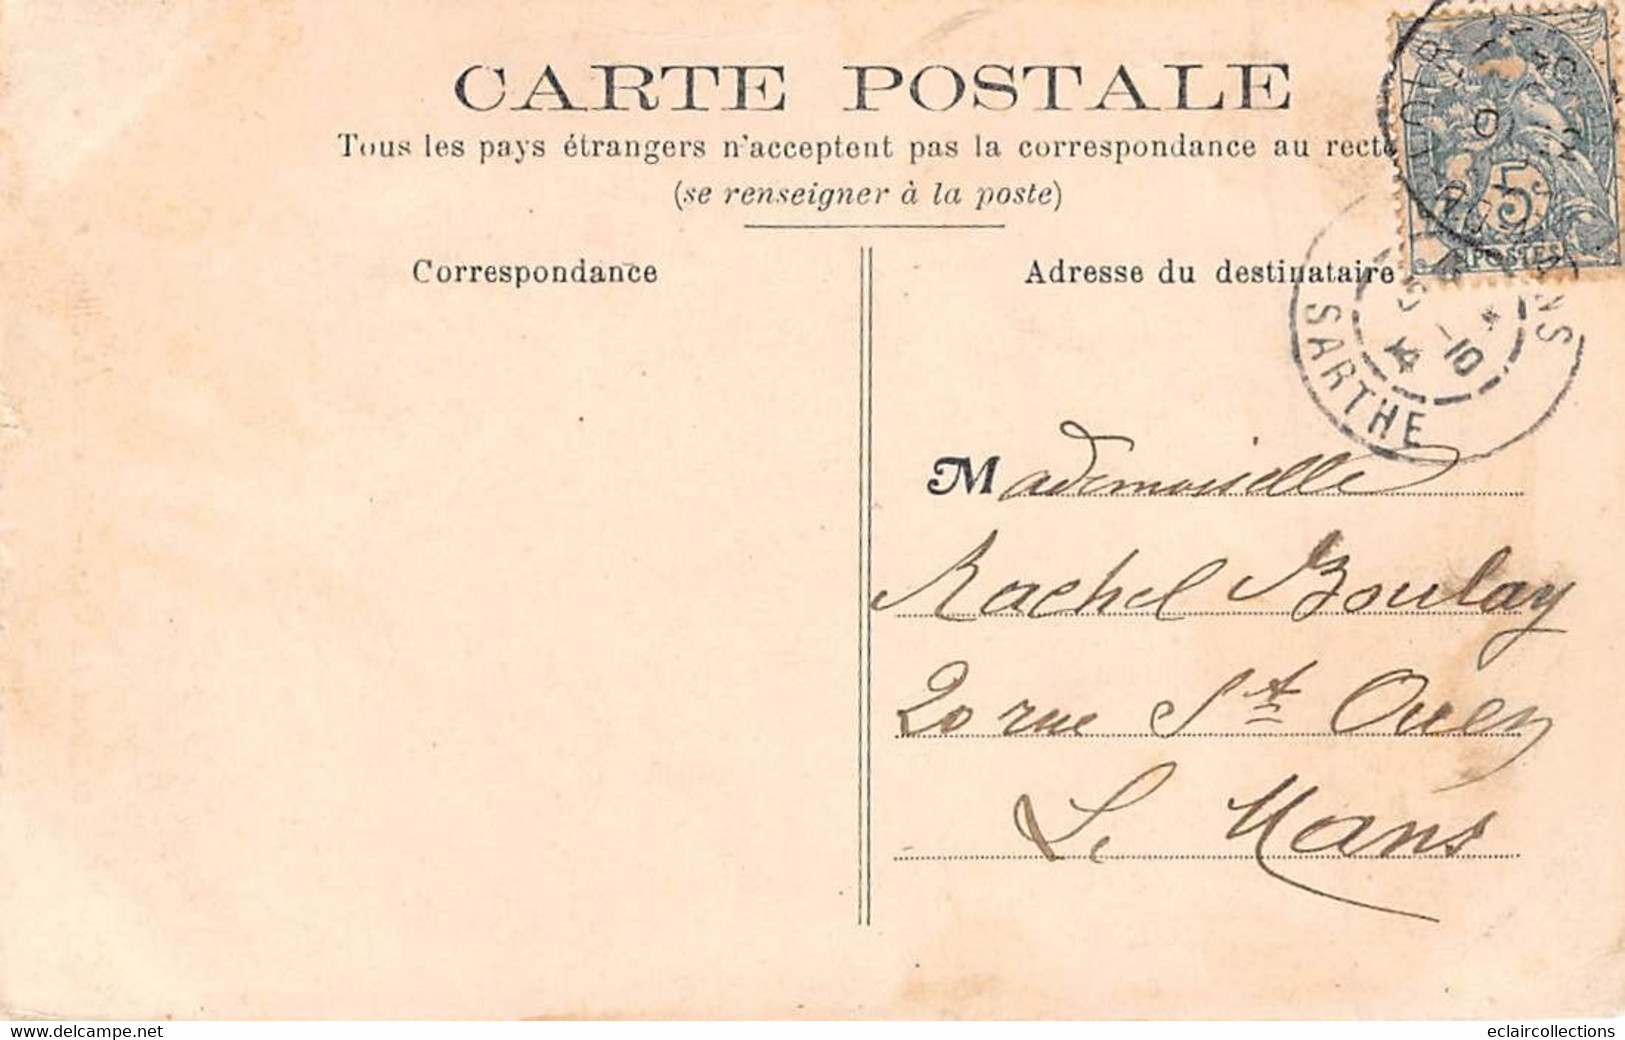 CARTE POSTALE
Tous les pays étrangers n'acceptent pas la correspondance au recto
(se renseigner à la poste)
Correspondance
Adresse du destinataire
5
POSTES
SARTHE
-10
Mademoiselle
Rachel Boulay
20 rue St Ouen
Le Mans
www.delcampe.net
eclaircollections